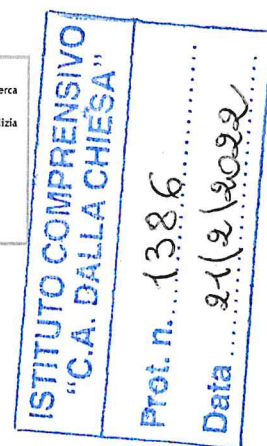 erca
izia
ISTITUTO COMPRENSIVO
"C.A. DALLA CHIESA"
Prot. n. 1386
Data 21/2/2022